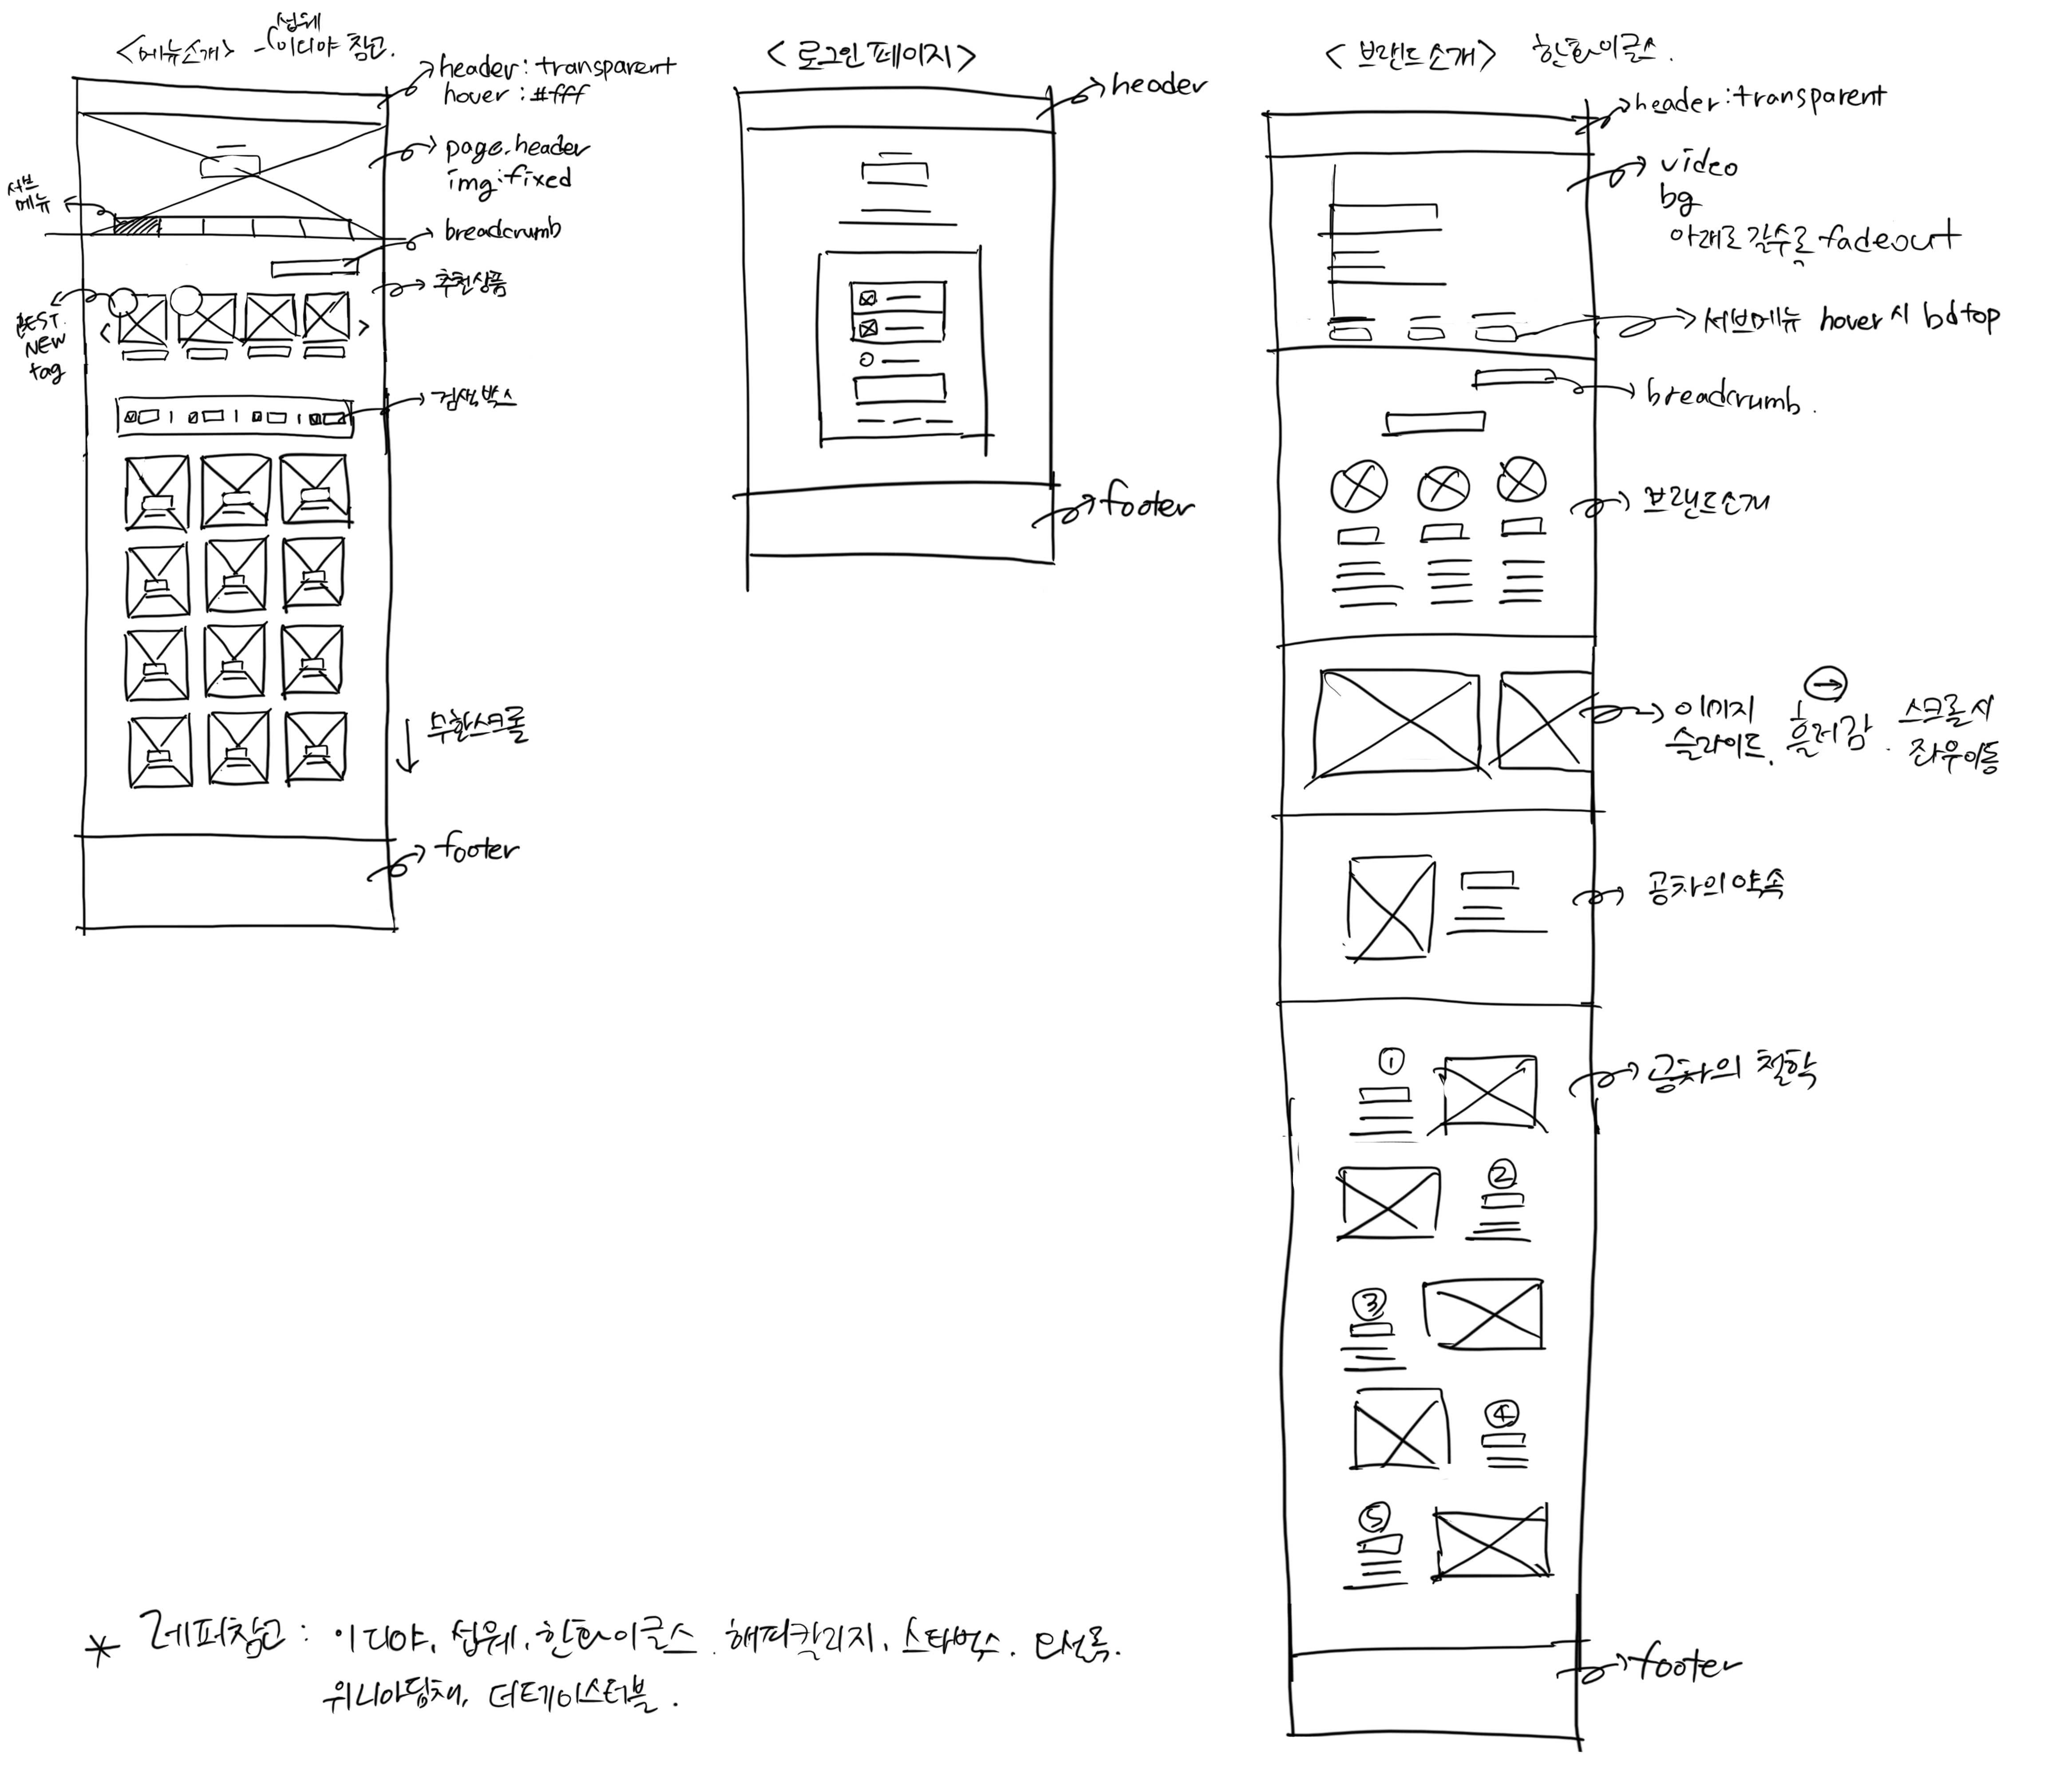 <메뉴소개> -
섭웨
이디야 참고.
header : transparent
hover : #fff
page.header
img:fixed
서브
메뉴
breadcrumb
추천상품
BEST.
NEW
tag
<
>
검색박스
무한스크롤
footer
<로그인 페이지>
header
footer
<브랜드소개> 한화이글스.
header:transparent
video
bg
아래로 갈수록 fadeout
서브메뉴 hover시 bdtop
breadcrumb.
브랜드소개
이미지
슬라이드.
흘러감.
스크롤시
좌우이동
공차의약속
공차의 철학
①
②
③
④
⑤
footer
* 레퍼참고 : 이디야, 섭웨, 한화이글스. 해피칼리지, 스타벅스. 오설록.
위니아딤채, 더테이스터블.